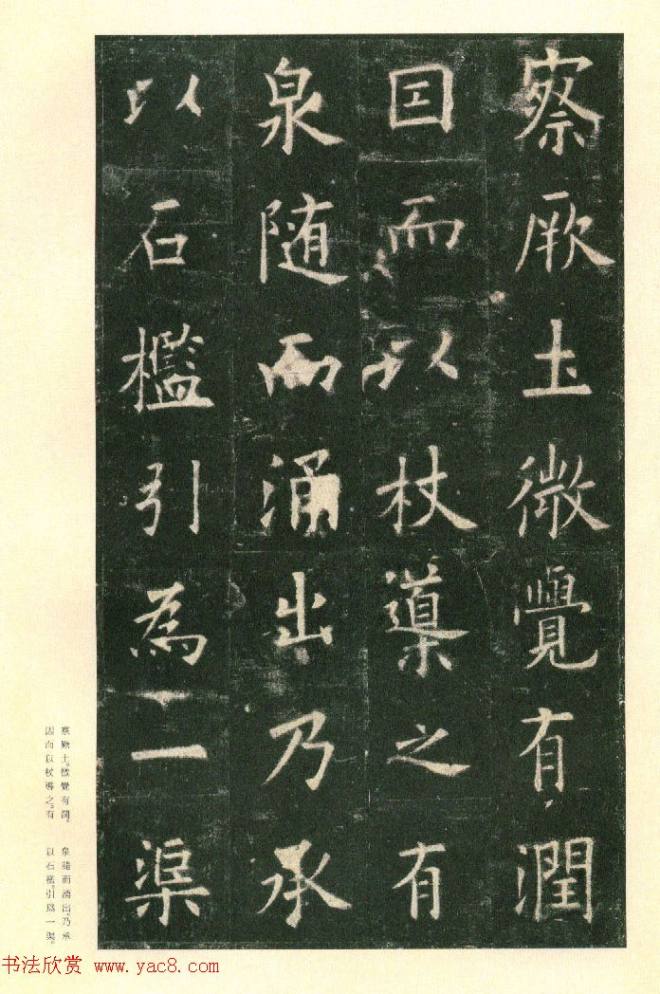 察厥𡈽微覺有潤
囙而以杖𨗓之有
泉随而涌出乃承
以石檻引為一渠
察厥土。微覺有潤。
因而以杖導之。有
泉隨而涌出。乃承
以石檻。引爲一渠。
书法欣赏 www.yac8.com